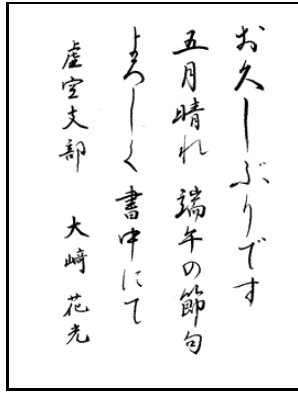 お久しぶりです
五月晴れ 端午の節句
よろしく 書中にて
虚空支部 大崎 花光